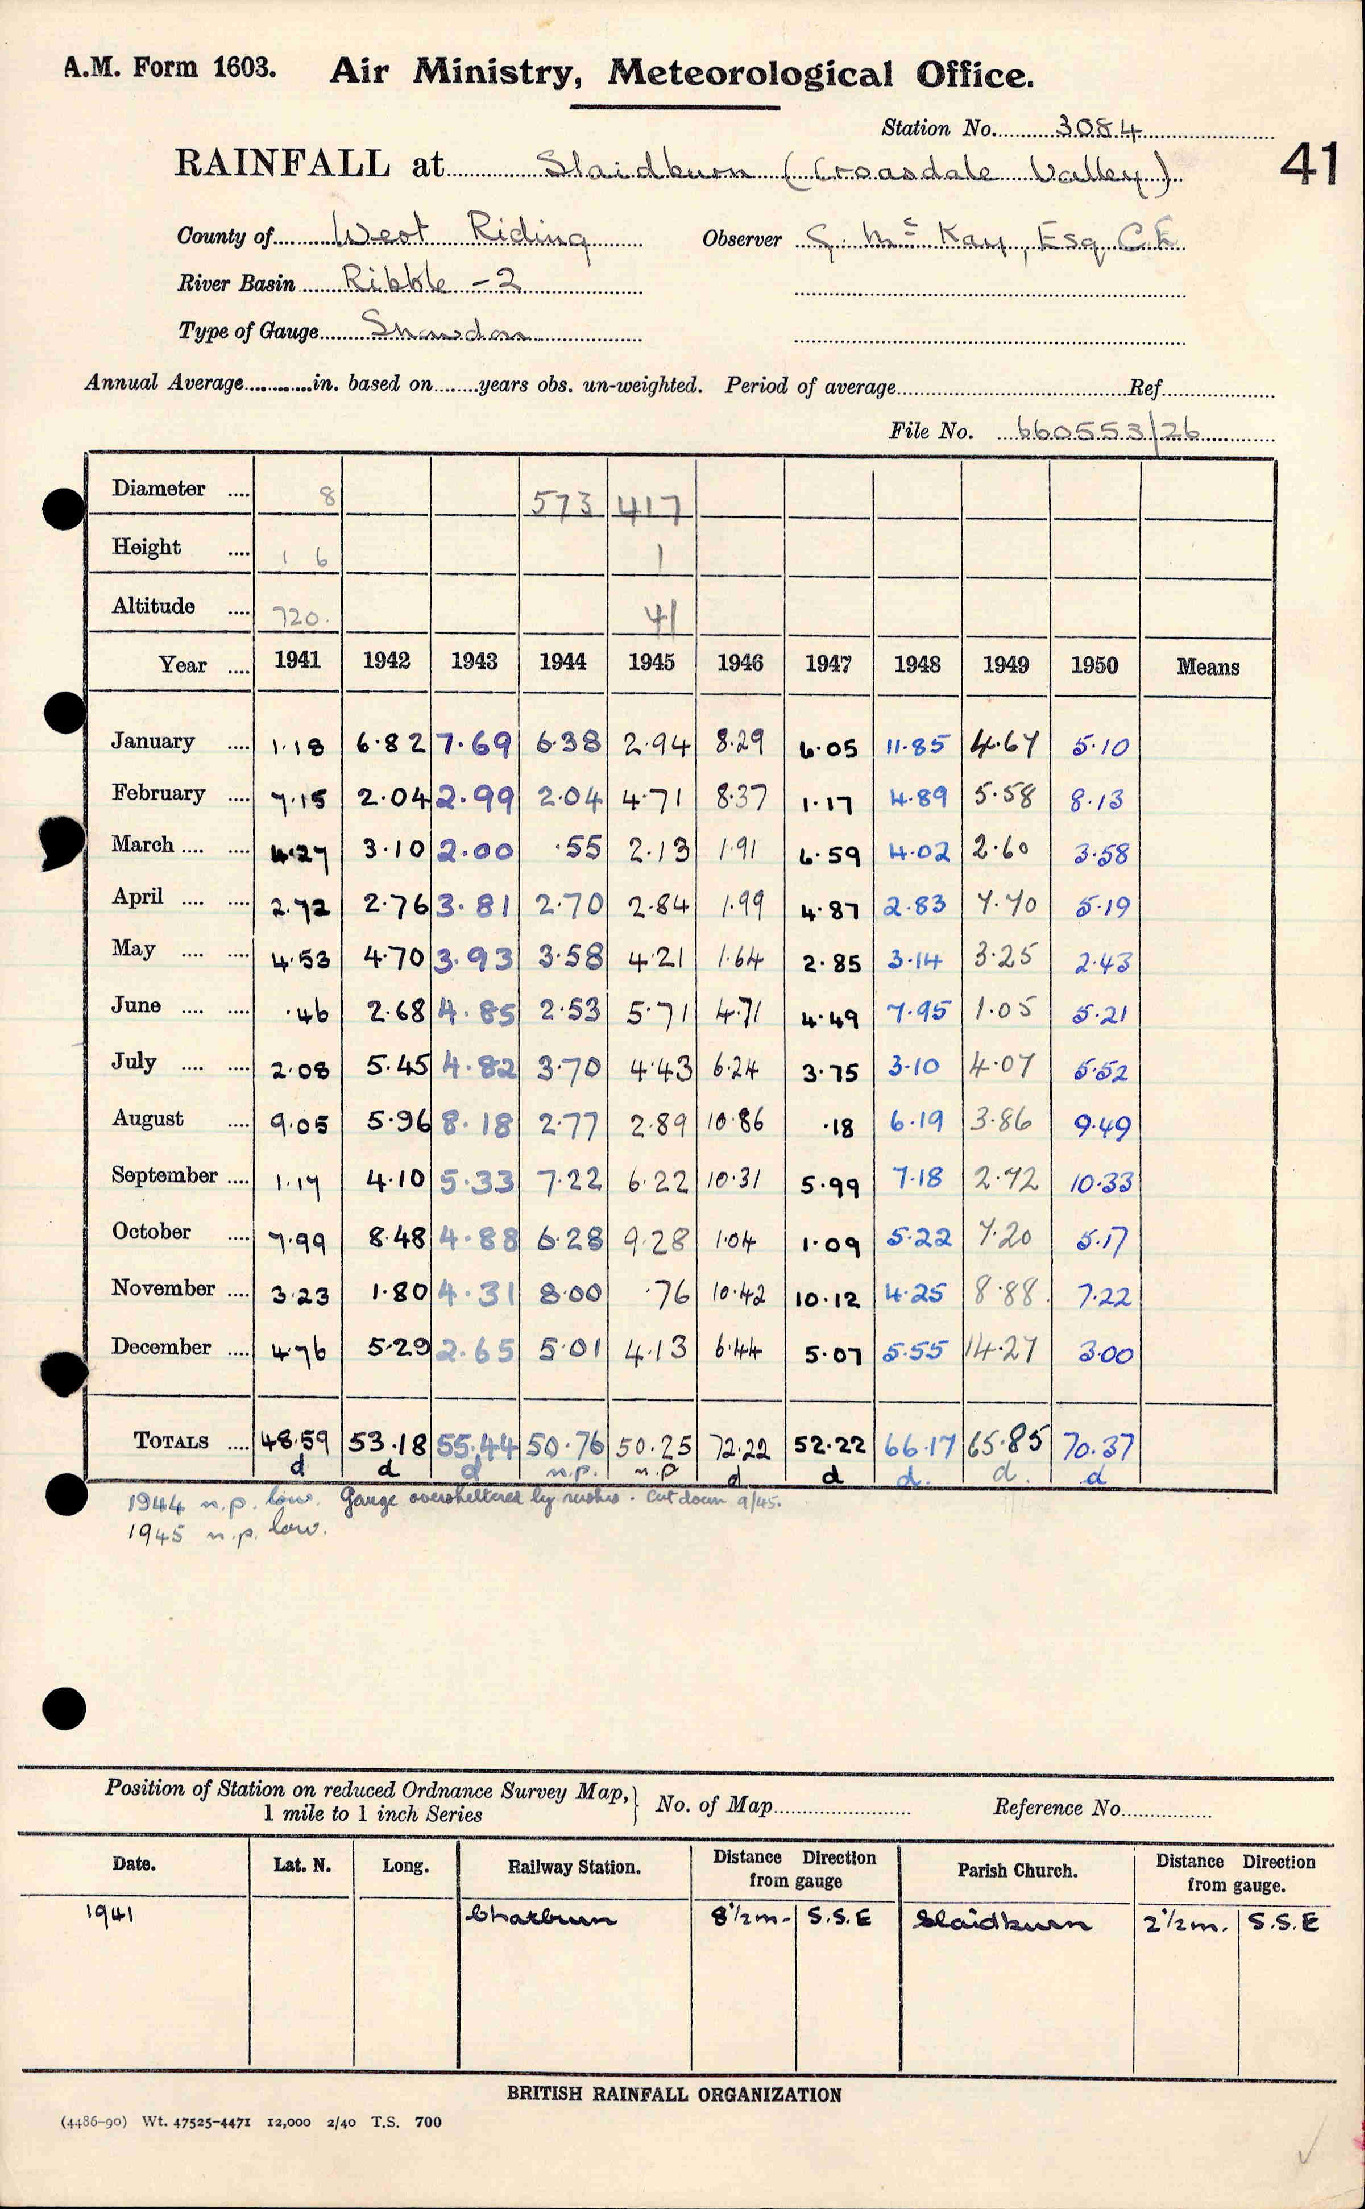 A.M. Form 1603. Air Ministry, Meteorological Office.
Station No. 3084
41
RAINFALL at Slaidburn (Croasdale Valley)
County of West Riding Observer G. Mc Kay, Esq C.E
River Basin Ribble - 2
Type of Gauge Snowdon
Annual Average in. based on years obs. un-weighted. Period of average Ref
File No. 660553/26
Diameter 8 573 417
Height 1 6 1
Altitude 720. 41
Year 1941 1942 1943 1944 1945 1946 1947 1948 1949 1950 Means
January 1.18 6.82 7.69 6.38 2.94 8.29 6.05 11.85 4.67 5.10
February 7.15 2.04 2.99 2.04 4.71 8.37 1.17 4.89 5.58 8.13
March 4.27 3.10 2.00 .55 2.13 1.91 6.59 4.02 2.60 3.58
April 2.72 2.76 3.81 2.70 2.84 1.99 4.87 2.83 7.70 5.19
May 4.53 4.70 3.93 3.58 4.21 1.64 2.85 3.14 3.25 2.43
June .46 2.68 4.85 2.53 5.71 4.71 4.49 7.95 1.05 5.21
July 2.08 5.45 4.82 3.70 4.43 6.24 3.75 3.10 4.07 5.52
August 9.05 5.96 8.18 2.77 2.89 10.86 .18 6.19 3.86 9.49
September 1.17 4.10 5.33 7.22 6.22 10.31 5.99 7.18 2.72 10.33
October 7.99 8.48 4.88 6.28 9.28 1.04 1.09 5.22 7.20 5.17
November 3.23 1.80 4.31 8.00 .76 10.42 10.12 4.25 8.88 7.22
December 4.76 5.29 2.65 5.01 4.13 6.44 5.07 5.55 14.27 3.00
TOTALS 48.59 53.18 55.44 50.76 50.25 72.22 52.22 66.17 65.85 70.37
d d d n.p. n.p d d d. d. d
1944 n.p. low. Gauge oversheltered by rushes. Cut down 9/45.
1945 n.p. low.
Position of Station on reduced Ordnance Survey Map, 1 mile to 1 inch Series } No. of Map Reference No.
Date. Lat. N. Long. Railway Station. Distance Direction from gauge Parish Church. Distance Direction from gauge.
1941 Chatburn 8 1/2 m. S.S.E Slaidburn 2 1/2 m. S.S.E
BRITISH RAINFALL ORGANIZATION
(4486-90) Wt. 47525-4471 12,000 2/40 T.S. 700